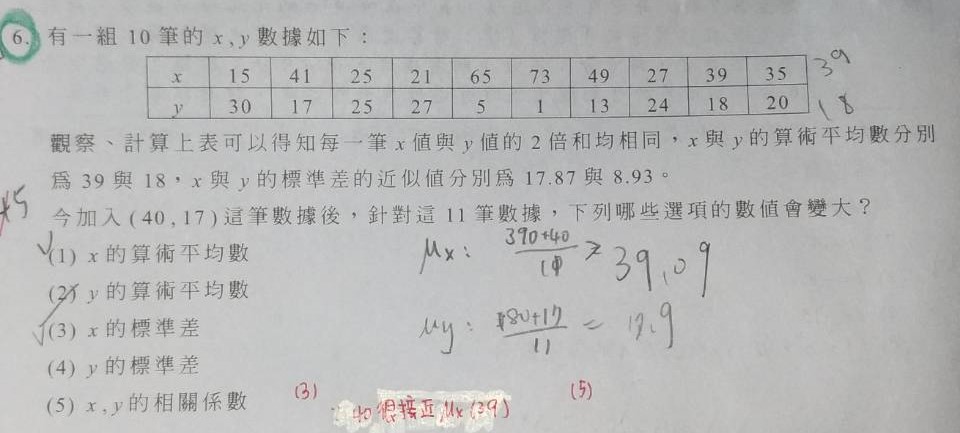 6. 有一組 10 筆的 x , y 數據如下：
x 15 41 25 21 65 73 49 27 39 35 39
y 30 17 25 27 5 1 13 24 18 20 18
觀察、計算上表可以得知每一筆 x 值與 y 值的 2 倍和均相同，x 與 y 的算術平均數分別
為 39 與 18，x 與 y 的標準差的近似值分別為 17.87 與 8.93。
今加入 (40 , 17) 這筆數據後，針對這 11 筆數據，下列哪些選項的數值會變大？
(1) x 的算術平均數
μx : 390+40
39.09
(2) y 的算術平均數
(3) x 的標準差
μy : 180+17 / 11 =
(4) y 的標準差
(5) x , y 的相關係數
(3) 40 很接近 μx (39) (5)